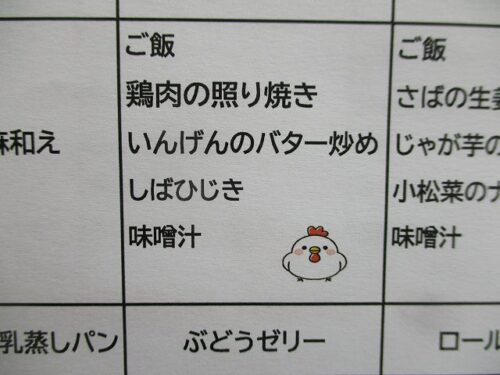 麻和え
乳蒸しパン
ご飯
鶏肉の照り焼き
いんげんのバター炒め
しばひじき
味噌汁
ぶどうゼリー
ご飯
さばの生姜
じゃが芋の
小松菜のナ
味噌汁
ロール